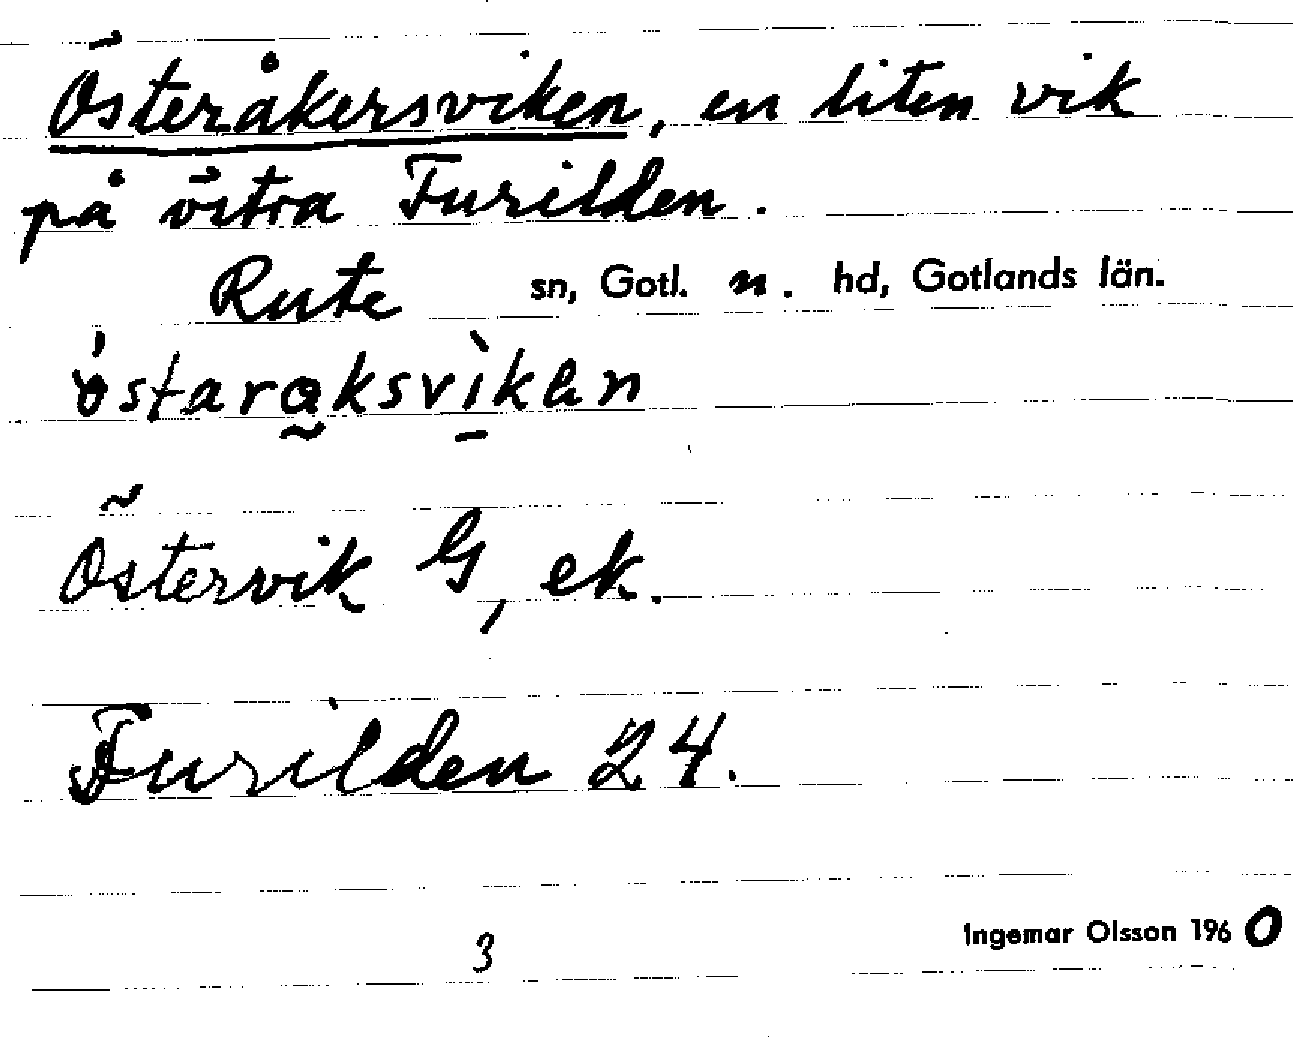 Österåkersviken, en liten vik
på östra Furilden.
Rute sn, Gotl. n. hd, Gotlands län.
östaraksvìkan
Östervik G, ek.
Furilden 24.
3
Ingemar Olsson 1960